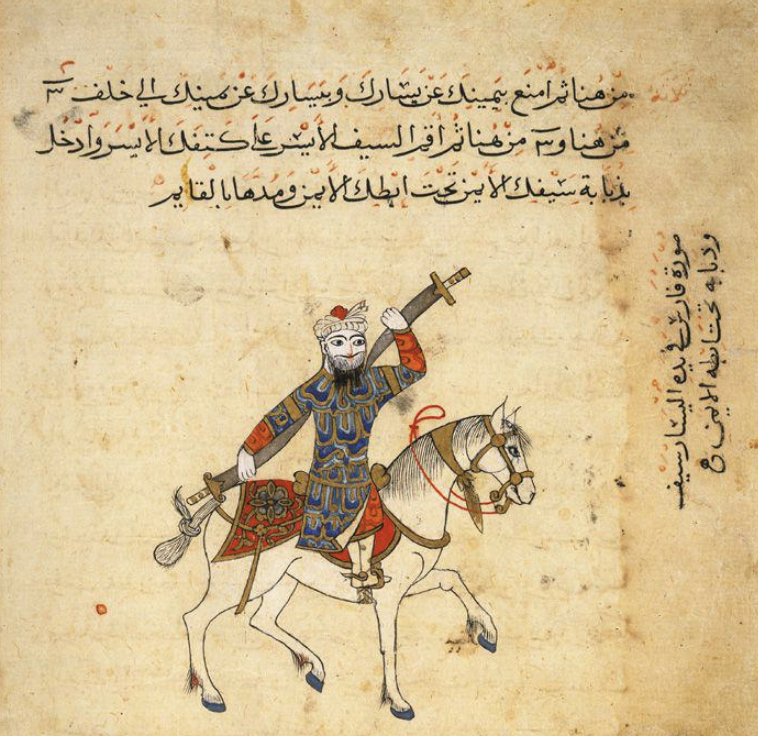 من هنا ثم امنع بيمينك عن يسارك وبيسارك عن يمينك الي خلف
من هنا و من هنا ثم اقم السيف الأيسر علي كتفك الايسر وادخل
بذبابة سيفك الايمن تحت ابطك الايمن ومدها بالقايم
صورة فارس في يده اليسار سيف
وذبابه تحت ابطه الايمن